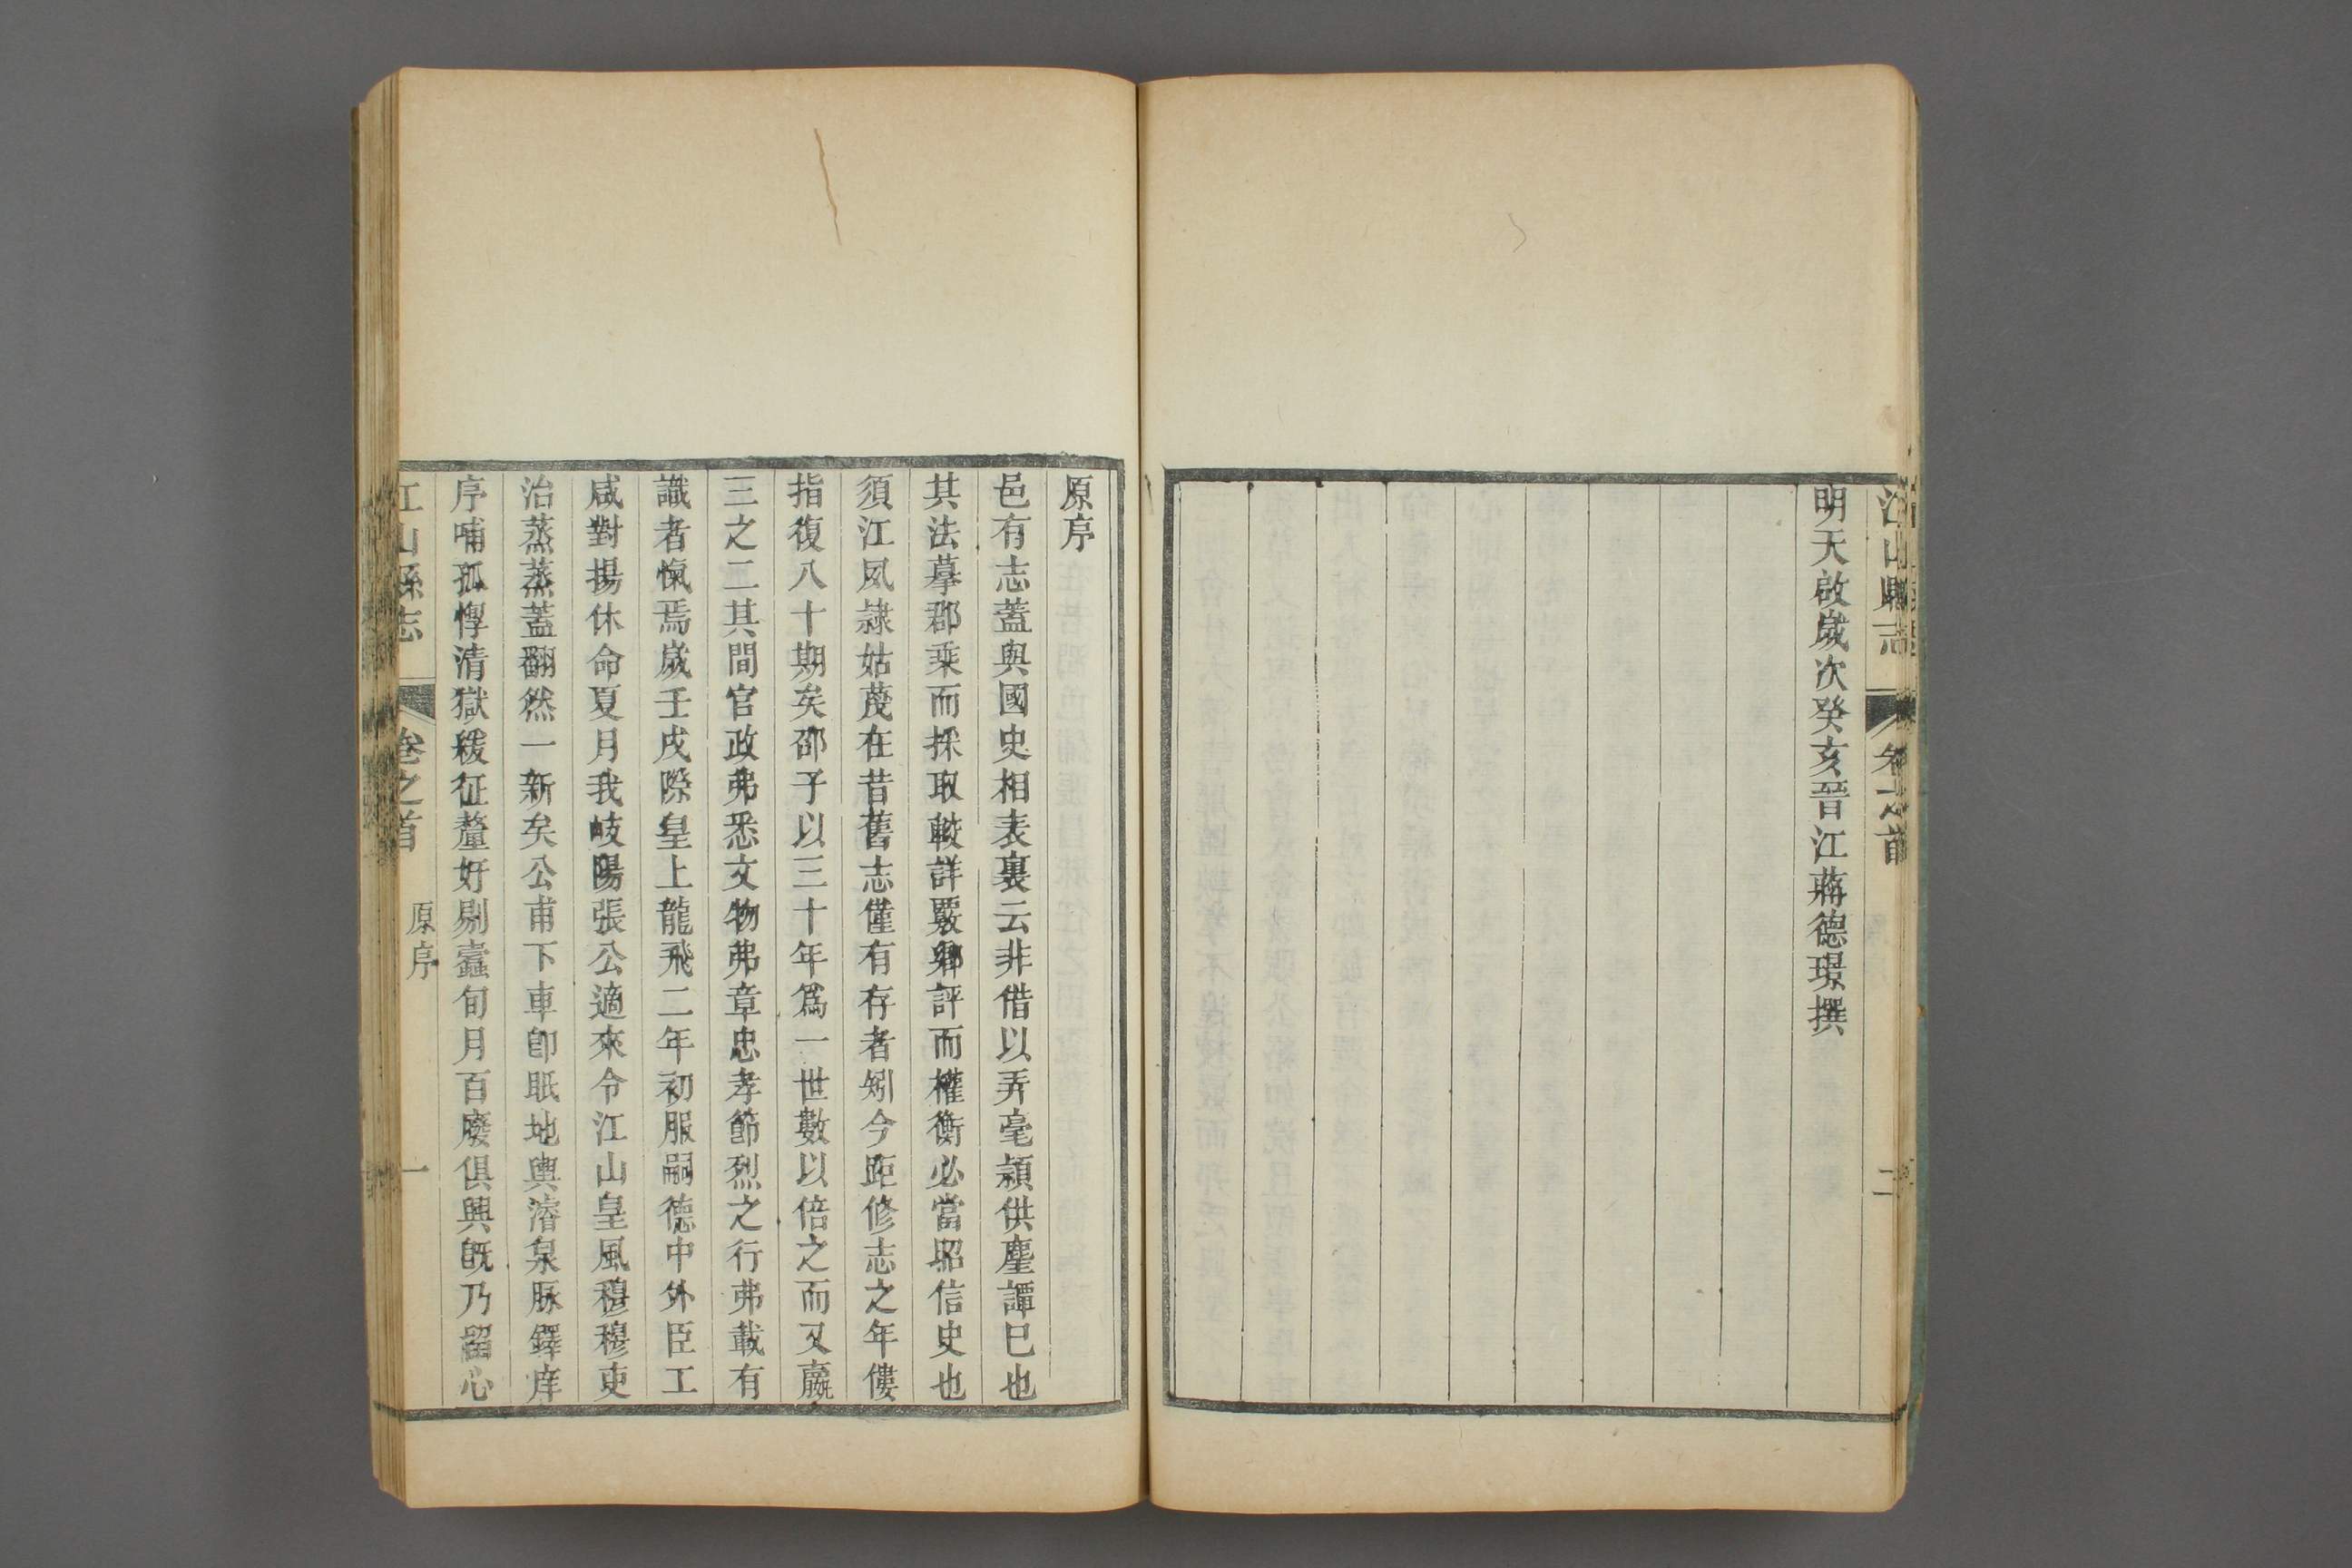 江山縣志
卷之首
二
明天啟歲次癸亥晉江蔣德璟撰
原序
邑有志蓋與國史相表裏云非借以弄毫穎供麈譚巳也
其法摹郡乘而採取較詳覈鄉評而權衡必當昭信史也
須江夙隷姑蔑在昔舊志僅有存者矧今距修志之年僂
指復八十期矣邵子以三十年爲一世數以倍之而又嬴
三之二其間官政弗悉文物弗章忠孝節烈之行弗載有
識者愾焉歲壬戌際皇上龍飛二年初服嗣德中外臣工
咸對揚休命夏月我岐陽張公適來令江山皇風穆穆吏
治蒸蒸蓋翻然一新矣公甫下車卽眡地輿濬泉脈鐸庠
序哺孤惸清獄緩征釐奸剔蠹旬月百廢俱興旣乃留心
江山縣志
卷之首
原序
一